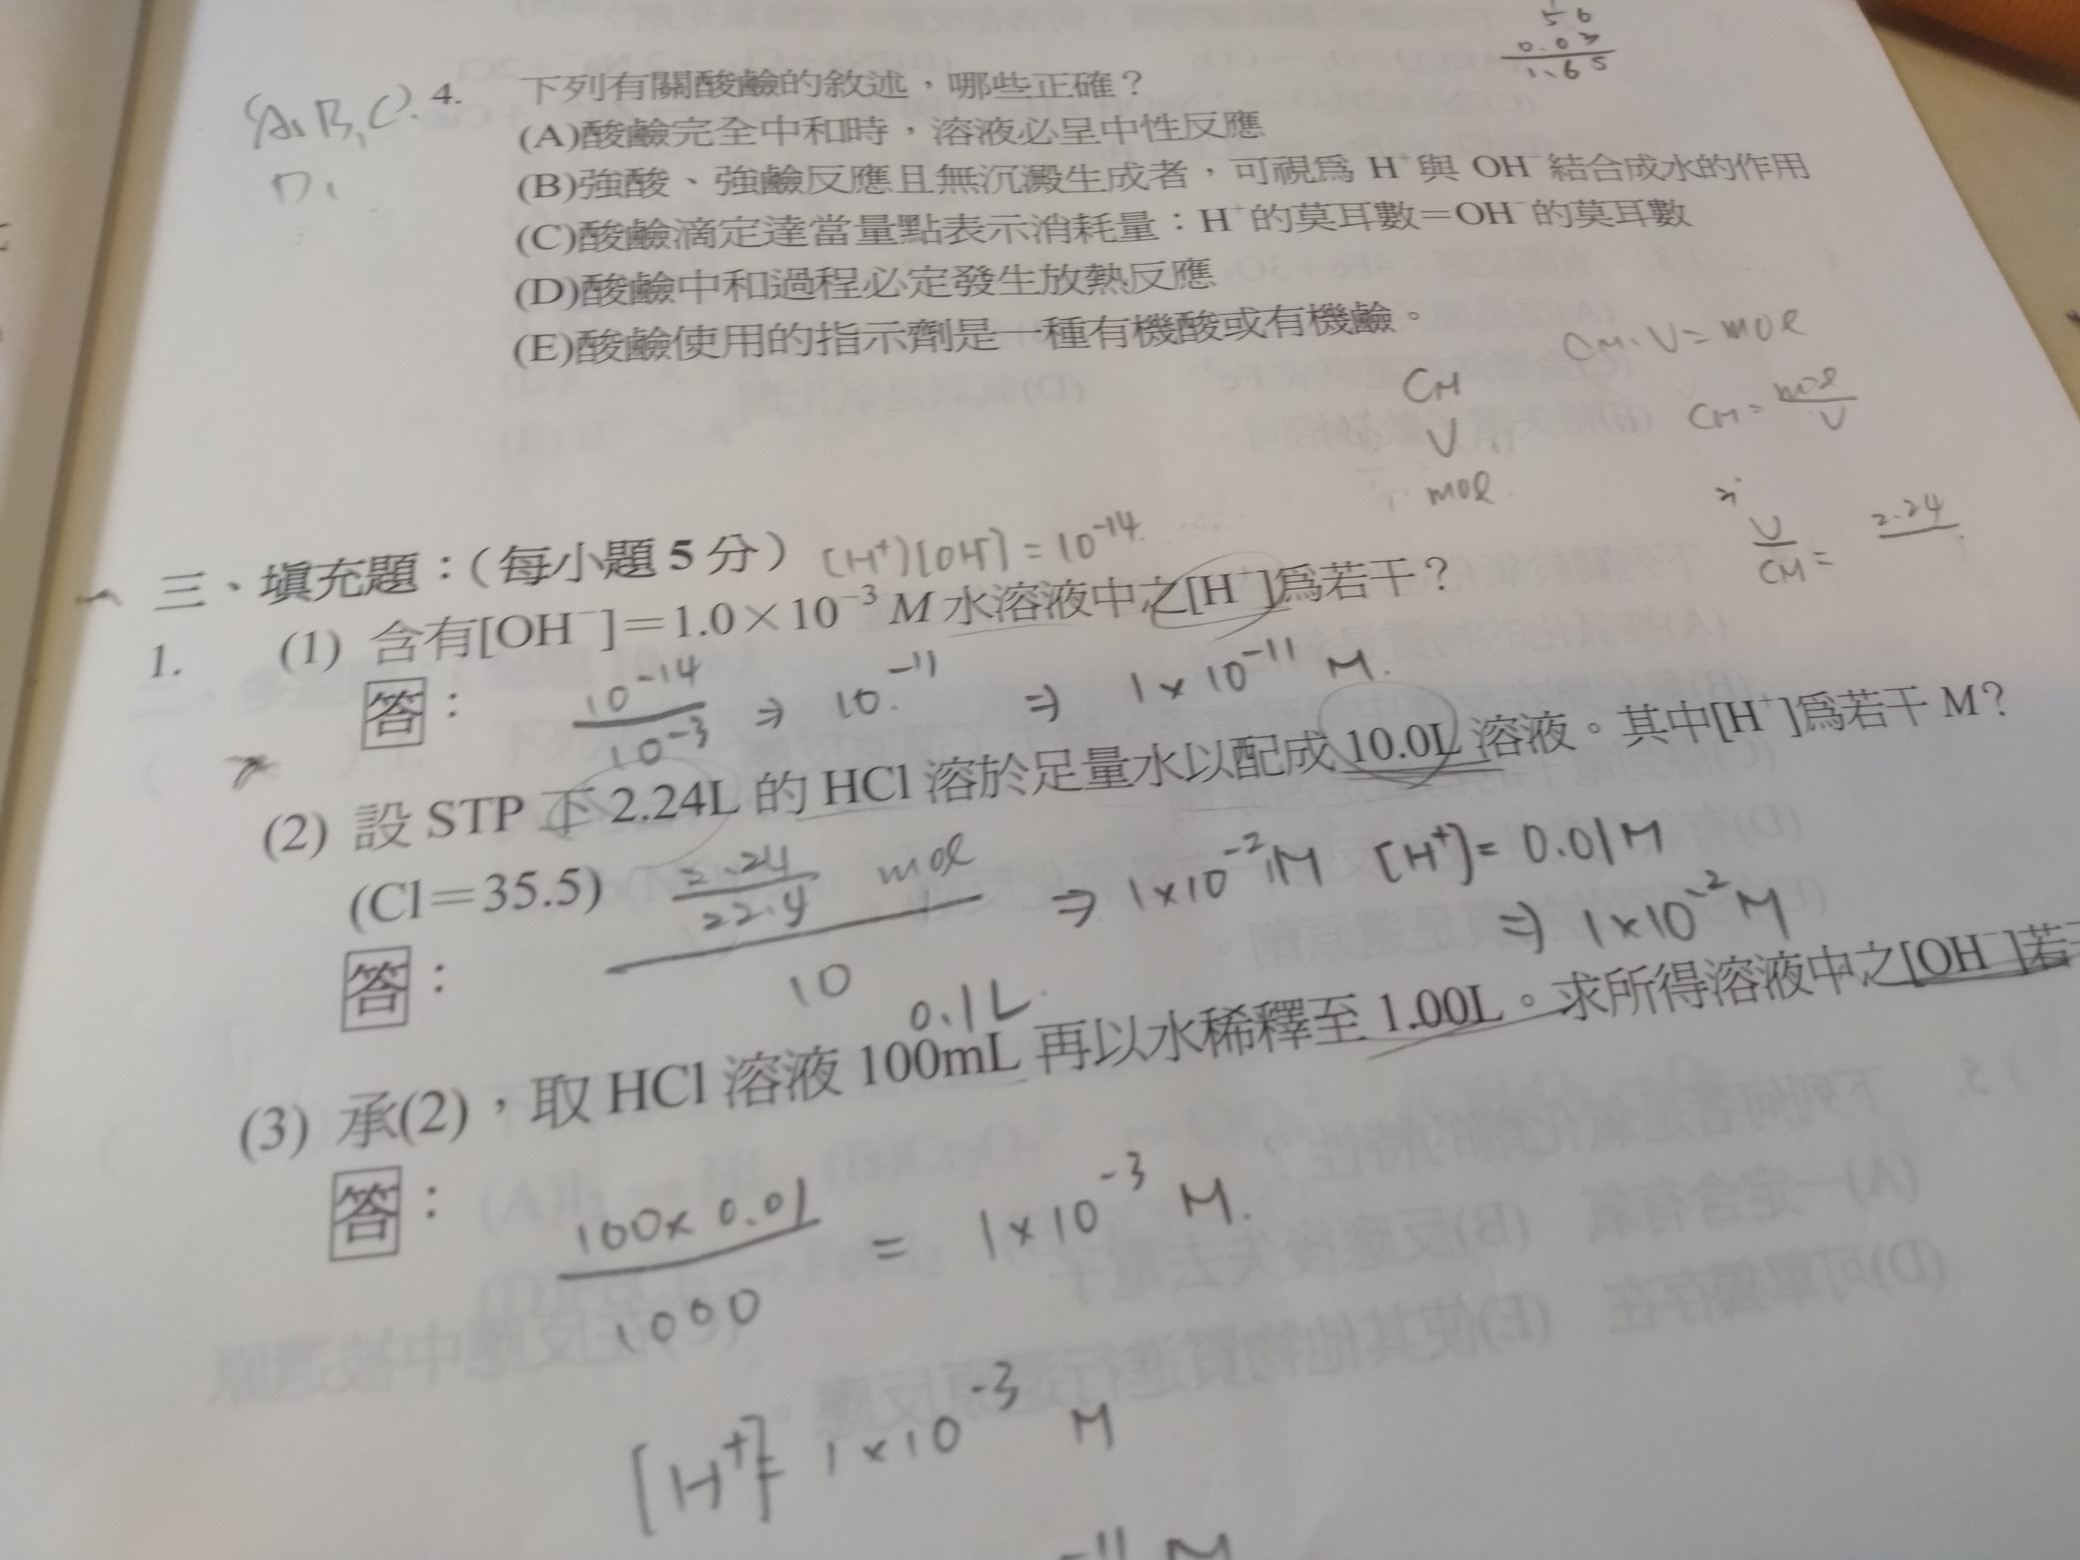 56
0.03
1.65
(A,B,C). 4. 下列有關酸鹼的敘述，哪些正確？
D,
(A)酸鹼完全中和時，溶液必呈中性反應
(B)強酸、強鹼反應且無沉澱生成者，可視為 H⁺與 OH⁻結合成水的作用
(C)酸鹼滴定達當量點表示消耗量：H⁺的莫耳數＝OH⁻的莫耳數
(D)酸鹼中和過程必定發生放熱反應
(E)酸鹼使用的指示劑是一種有機酸或有機鹼。
CM. V = mol
CM
V
mol
CM = mol/V
V/CM = 2.24
三、填充題：（每小題 5 分） [H⁺][OH⁻] = 10⁻¹⁴
1. (1) 含有[OH⁻]＝1.0×10⁻³ M 水溶液中之[H⁺]為若干？
答： 10⁻¹⁴/10⁻³ ⇒ 10⁻¹¹ ⇒ 1×10⁻¹¹ M.
(2) 設 STP 下 2.24L 的 HCl 溶於足量水以配成 10.0L 溶液。其中[H⁺]為若干 M？
(Cl＝35.5) 2.24/22.4 mol ⇒ 1×10⁻² M [H⁺]= 0.01M
答： 10 ⇒ 1×10⁻² M
0.1L
(3) 承(2)，取 HCl 溶液 100mL 再以水稀釋至 1.00L。求所得溶液中之[OH⁻]若
答： 100×0.01/1000 = 1×10⁻³ M.
[H⁺]= 1×10⁻³ M
⁻¹¹ M